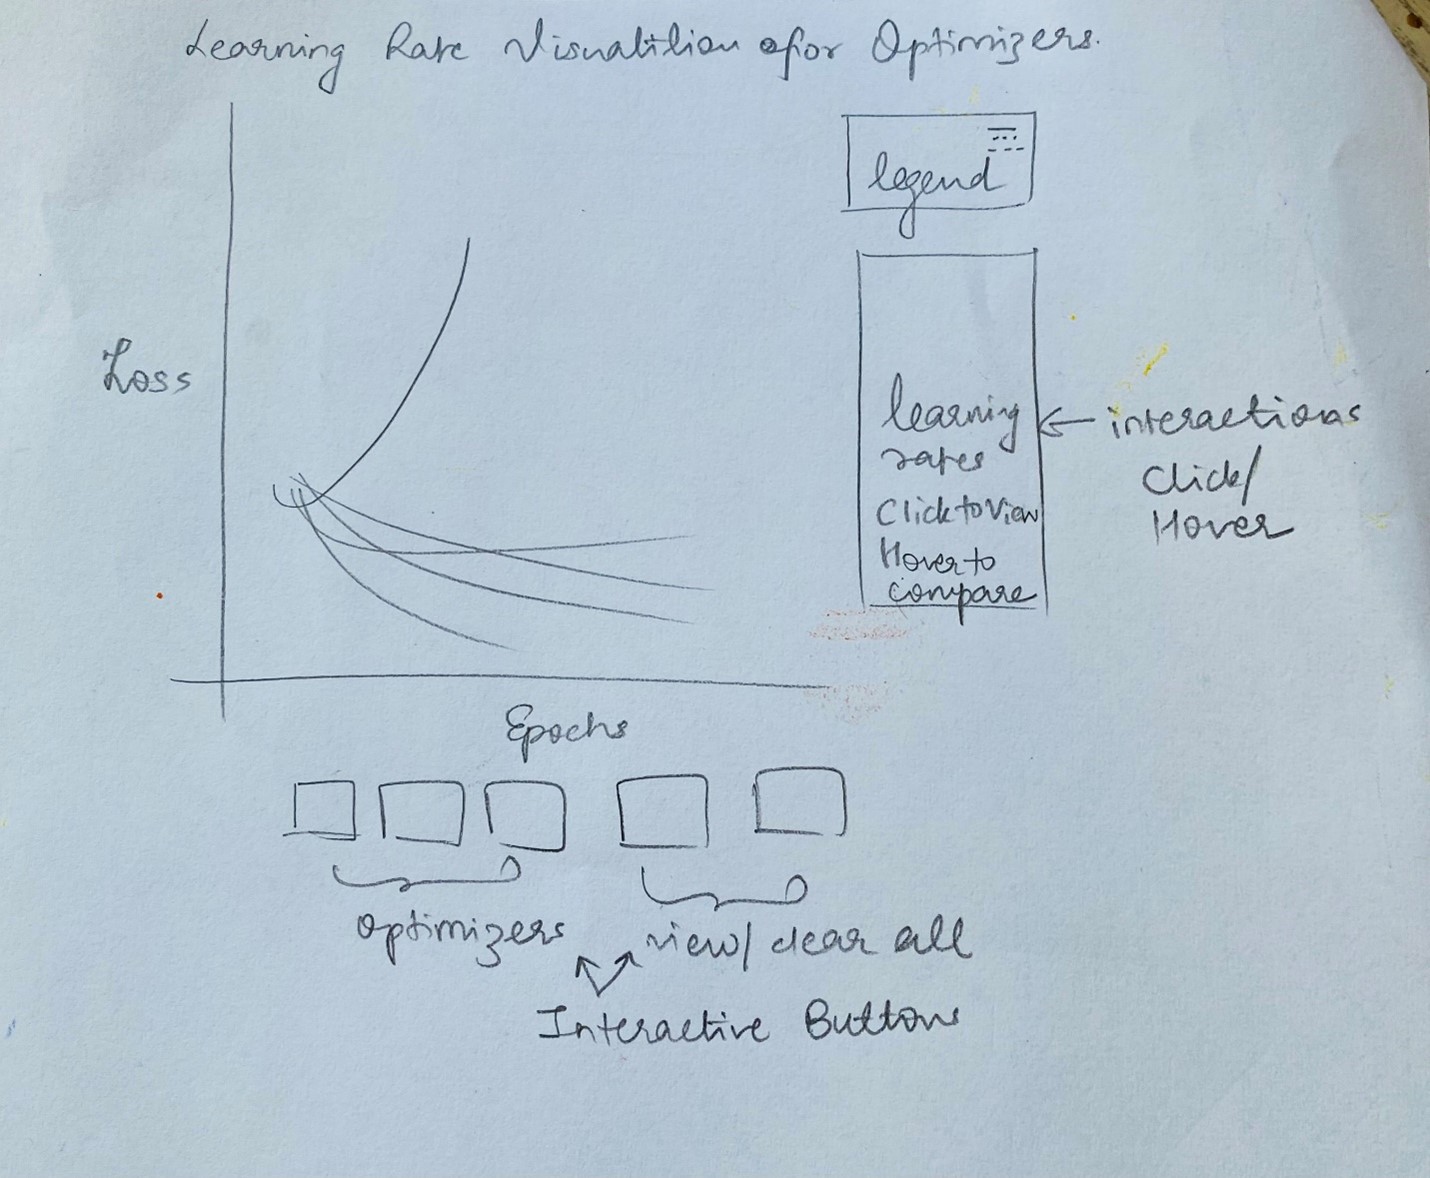 Learning Rate Visualition for Optimizers.
legend
Loss
learning
rates
Click to View
Hover to
compare
interactions
Click/
Hover
Epochs
optimizers
view/ clear all
Interactive Buttons